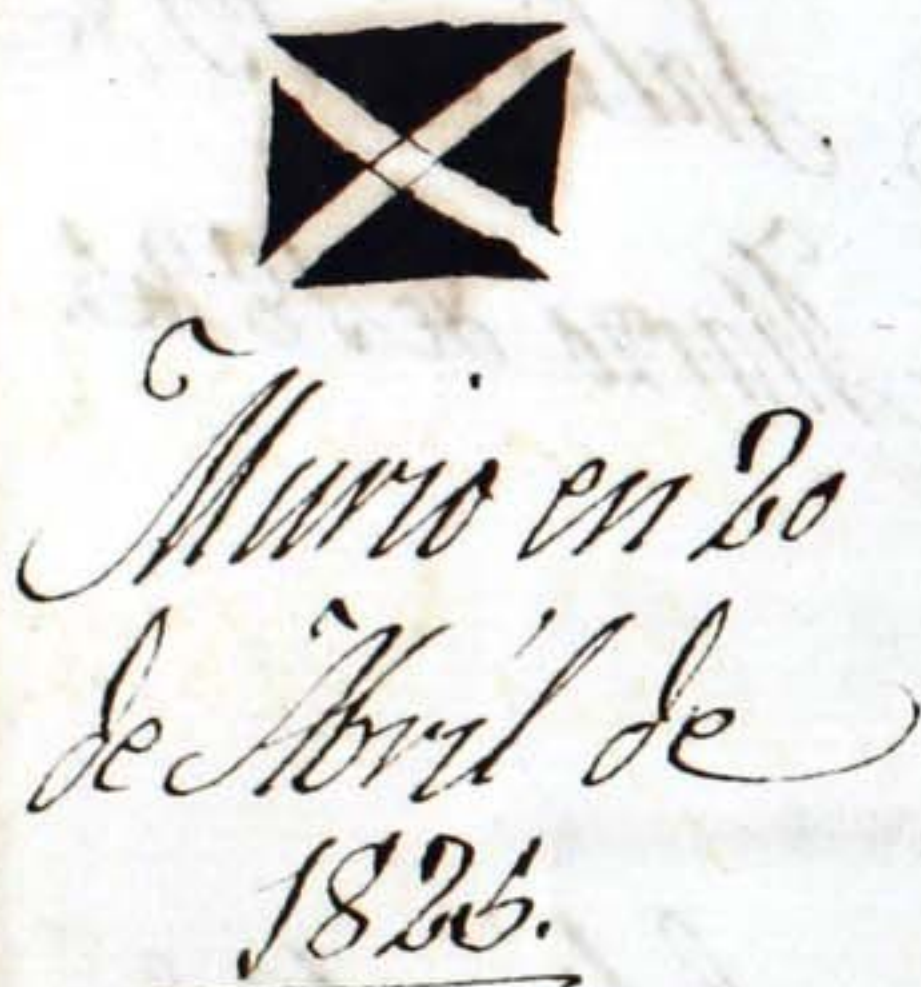 Murio en 20
de Abril de
1826.